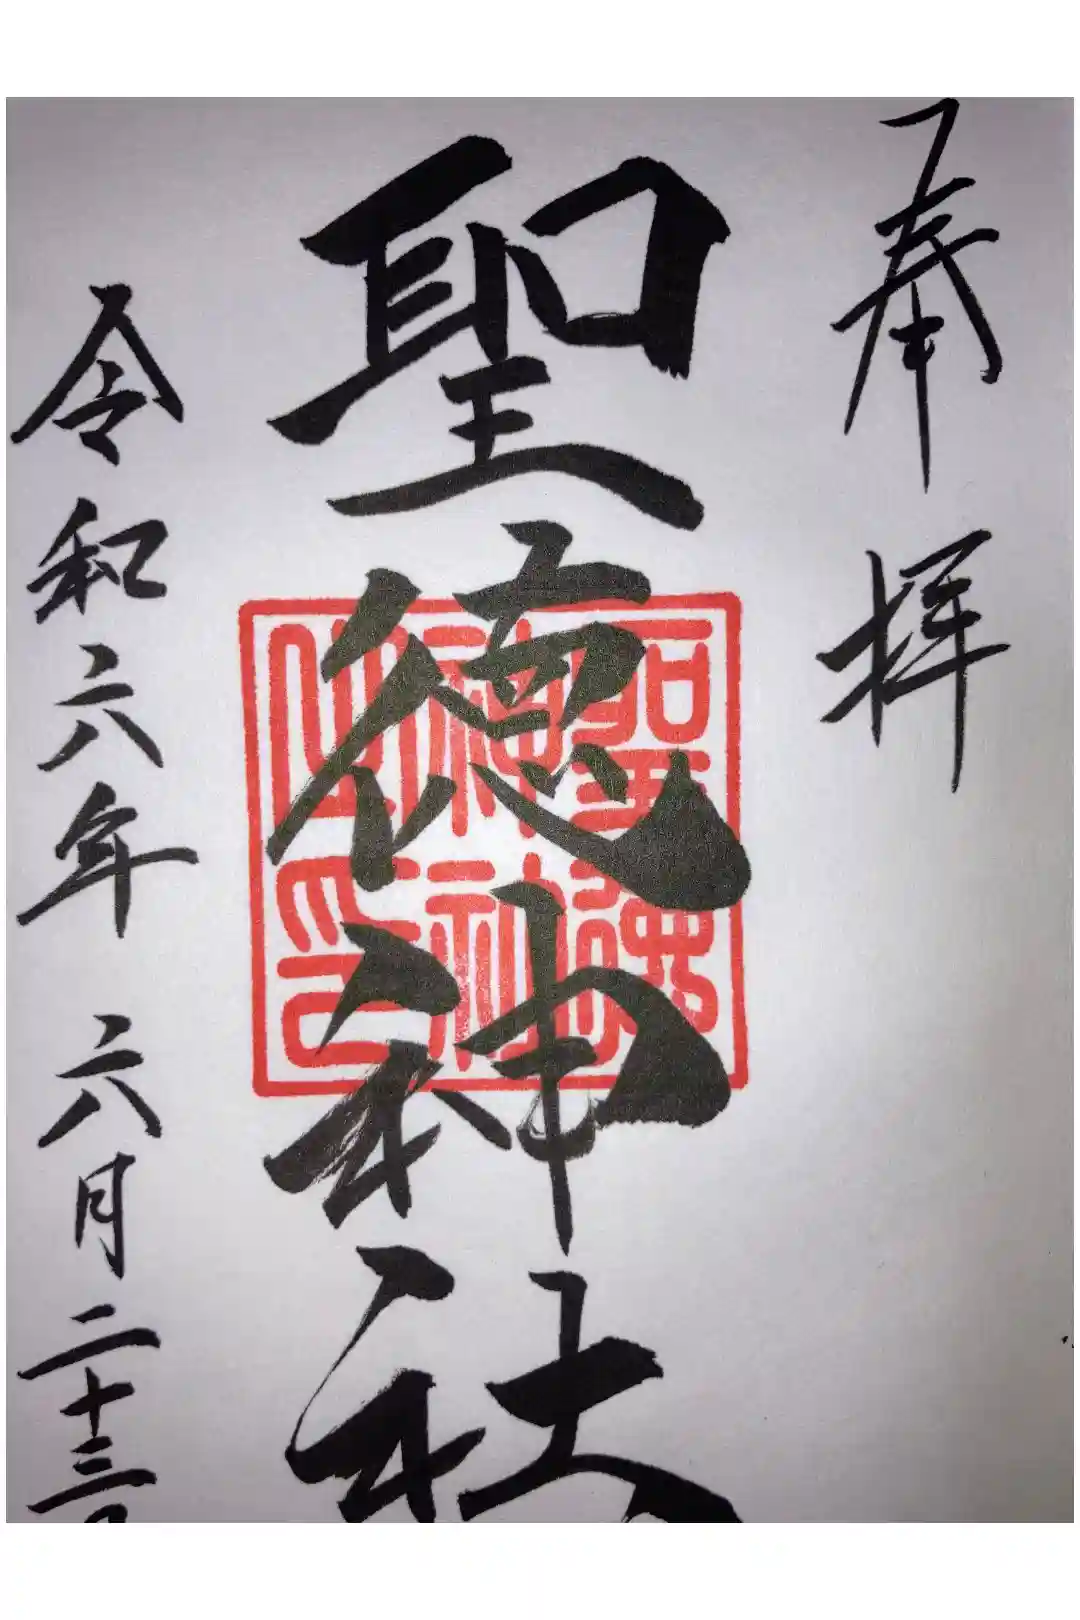 奉拝
聖徳神社
聖徳神社之印
令和六年 六月二十三日